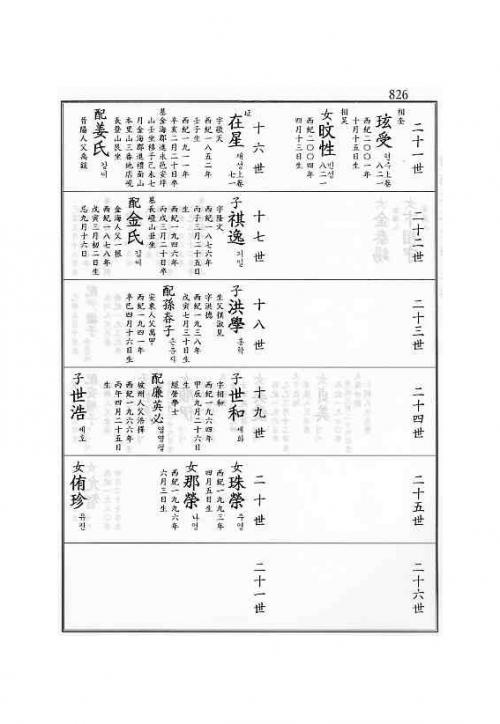 826
二十一世
相奎
玹受
현수上卷
八二一
西紀二〇〇一年
十月十五日生
相昊
女旼性
민성
八二一
西紀二〇〇四年
四月十三日生
二十二世
二十三世
二十四世
二十五世
二十六世
十六世
在星
재성上卷
七一
字敬天
西紀一八五二年
壬子生
西紀一九一一年
辛亥二月二十日卒
配姜氏
강씨
晉陽人父禹錫
十七世
子祺逸
기일
字隆文
西紀一八七六年
丙子三月二十五日
生
西紀一九四六年
丙戌三月二十日卒
墓長登山艮坐
配金氏
김씨
金海人父一振
西紀一八七八年
戊寅三月初二日生
忌九月十六日
十八世
子洪學
홍학
生父祺淑見
字洪德
西紀一九三八年
戊寅七月三十日生
配孫春子
손춘자
安東人父萬甲
西紀一九四一年
辛巳四月十六日生
十九世
子世和
세화
字相和
西紀一九六四年
甲辰九月二十六日
生
經營學士
配廉英必
염영필
坡州人父浩擇
西紀一九六六年
丙午四月二十五日
生
子世浩
세호
二十世
女珠榮
주영
西紀一九九三年
四月五日生
女那榮
나영
西紀一九九六年
六月三日生
女侑珍
유진
二十一世